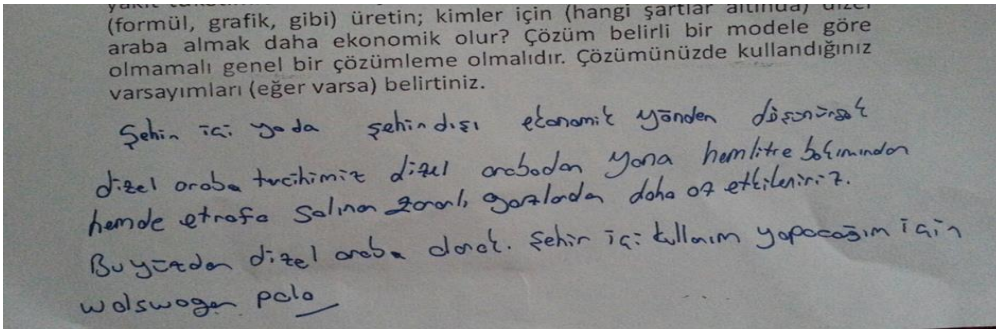 (formül, grafik, gibi) üretin; kimler için (hangi şartlar altında) dizel
araba almak daha ekonomik olur? Çözüm belirli bir modele göre
olmamalı genel bir çözümleme olmalıdır. Çözümünüzde kullandığınız
varsayımları (eğer varsa) belirtiniz.
Şehin içi yada şehin dışı ekonomik yönden düşünürsek
dizel araba tercihimiz dizel arabadan yana hemlitre bakımından
hemde etrafa salınan zararlı gazlardan daha az etkileniriz.
Bu yüzden dizel araba alarak. Şehir içi kullanım yapacağım için
wolswagen polo